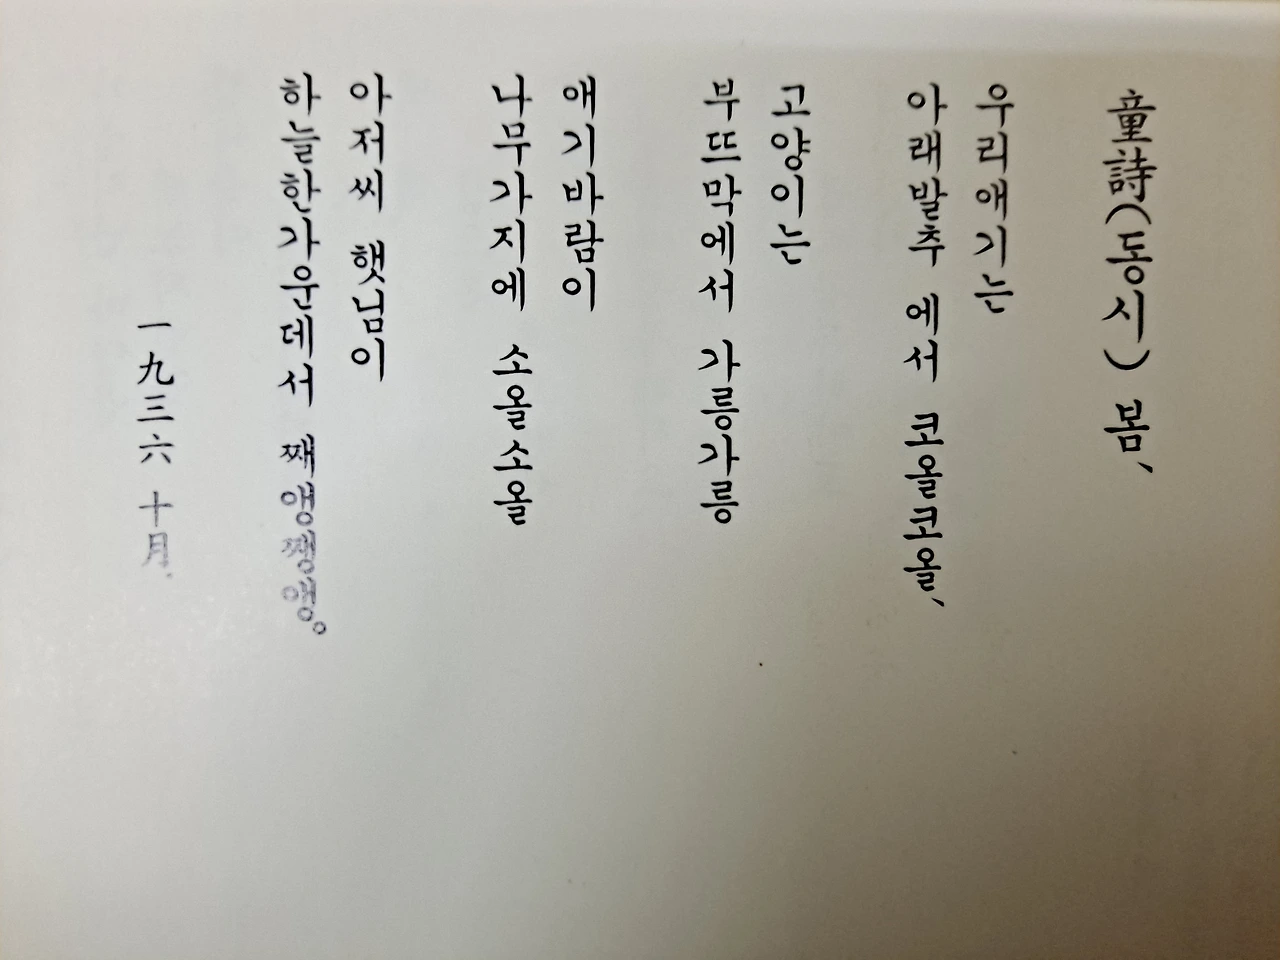 童詩(동시) 봄、
우리애기는
아래발추 에서 코올코올、
고양이는
부뜨막에서 가릉가릉
애기바람이
나무가지에 소올소올
아저씨 햇님이
하늘한가운데서 째앵쨍앵。
一九三六 十月.